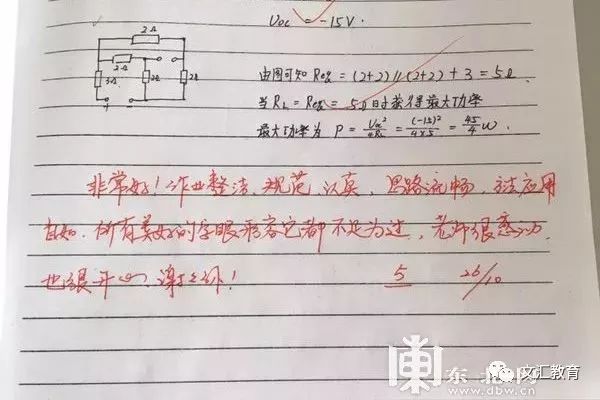 Uoc = -15V.
2Ω
2Ω
3Ω 2Ω 2Ω
由图可知 Req = (2+2)//(2+2) + 3 = 5Ω
当 RL = Req = 5Ω 时获得最大功率
最大功率为 P = Uoc²/4RL = (-15)²/4×5 = 45/4 W.
非常好！作业整洁、规范、认真，思路流畅，方法应用
自如，所有美好的字眼形容它都不足为过，老师很感动，
也很开心，谢
5 26/10
东北网
www.dbw.cn
文汇教育